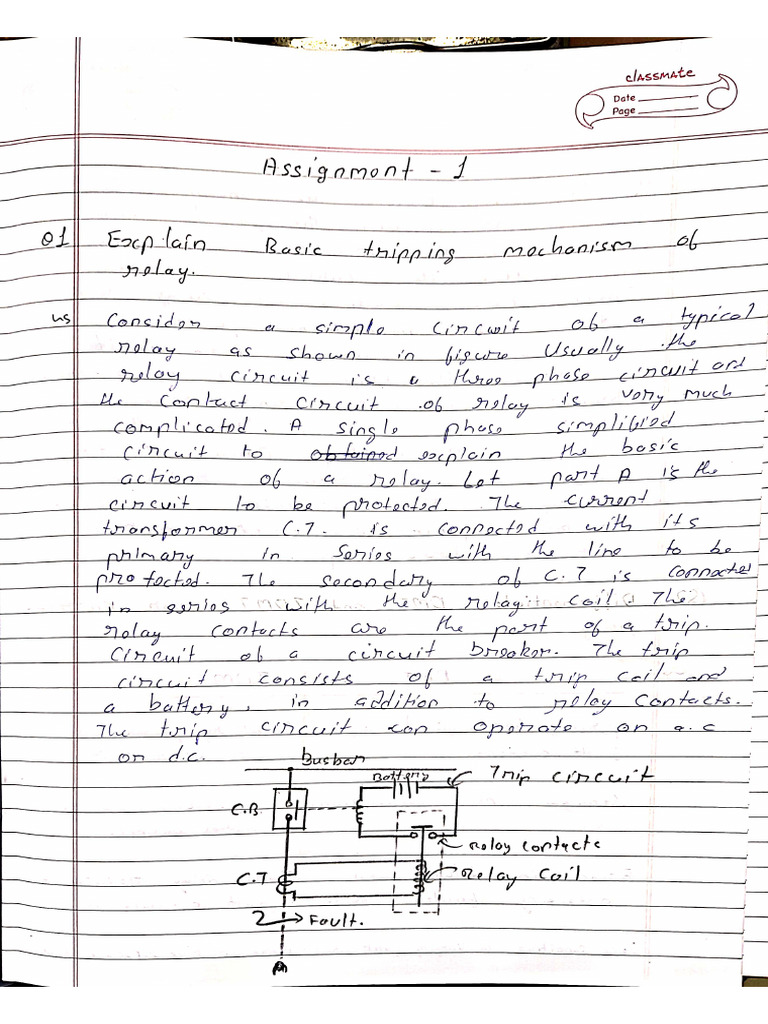 classmate
Date
Page
Assignment - 1
Q1 Explain Basic tripping mechanism of
relay.
Ans Consider a simple circuit of a typical
relay as shown in figure Usually the
relay circuit is a three phase circuit and
the contact circuit of relay is very much
complicated. A single phase simplified
circuit to obtained explain the basic
action of a relay. Let part A is the
circuit to be protected. The current
transformer C.T. is connected with its
primary in series with the line to be
protected. The secondary of C.T is connected
in series with the relay coil. The
relay contacts are the part of a trip.
circuit of a circuit breaker. The trip
circuit consists of a trip coil and
a battery, in addition to relay contacts.
The trip circuit can operate on a.c
or d.c.
Busbar
Battery
Trip circuit
C.B.
relay contacts
C.T
relay coil
Fault.
A